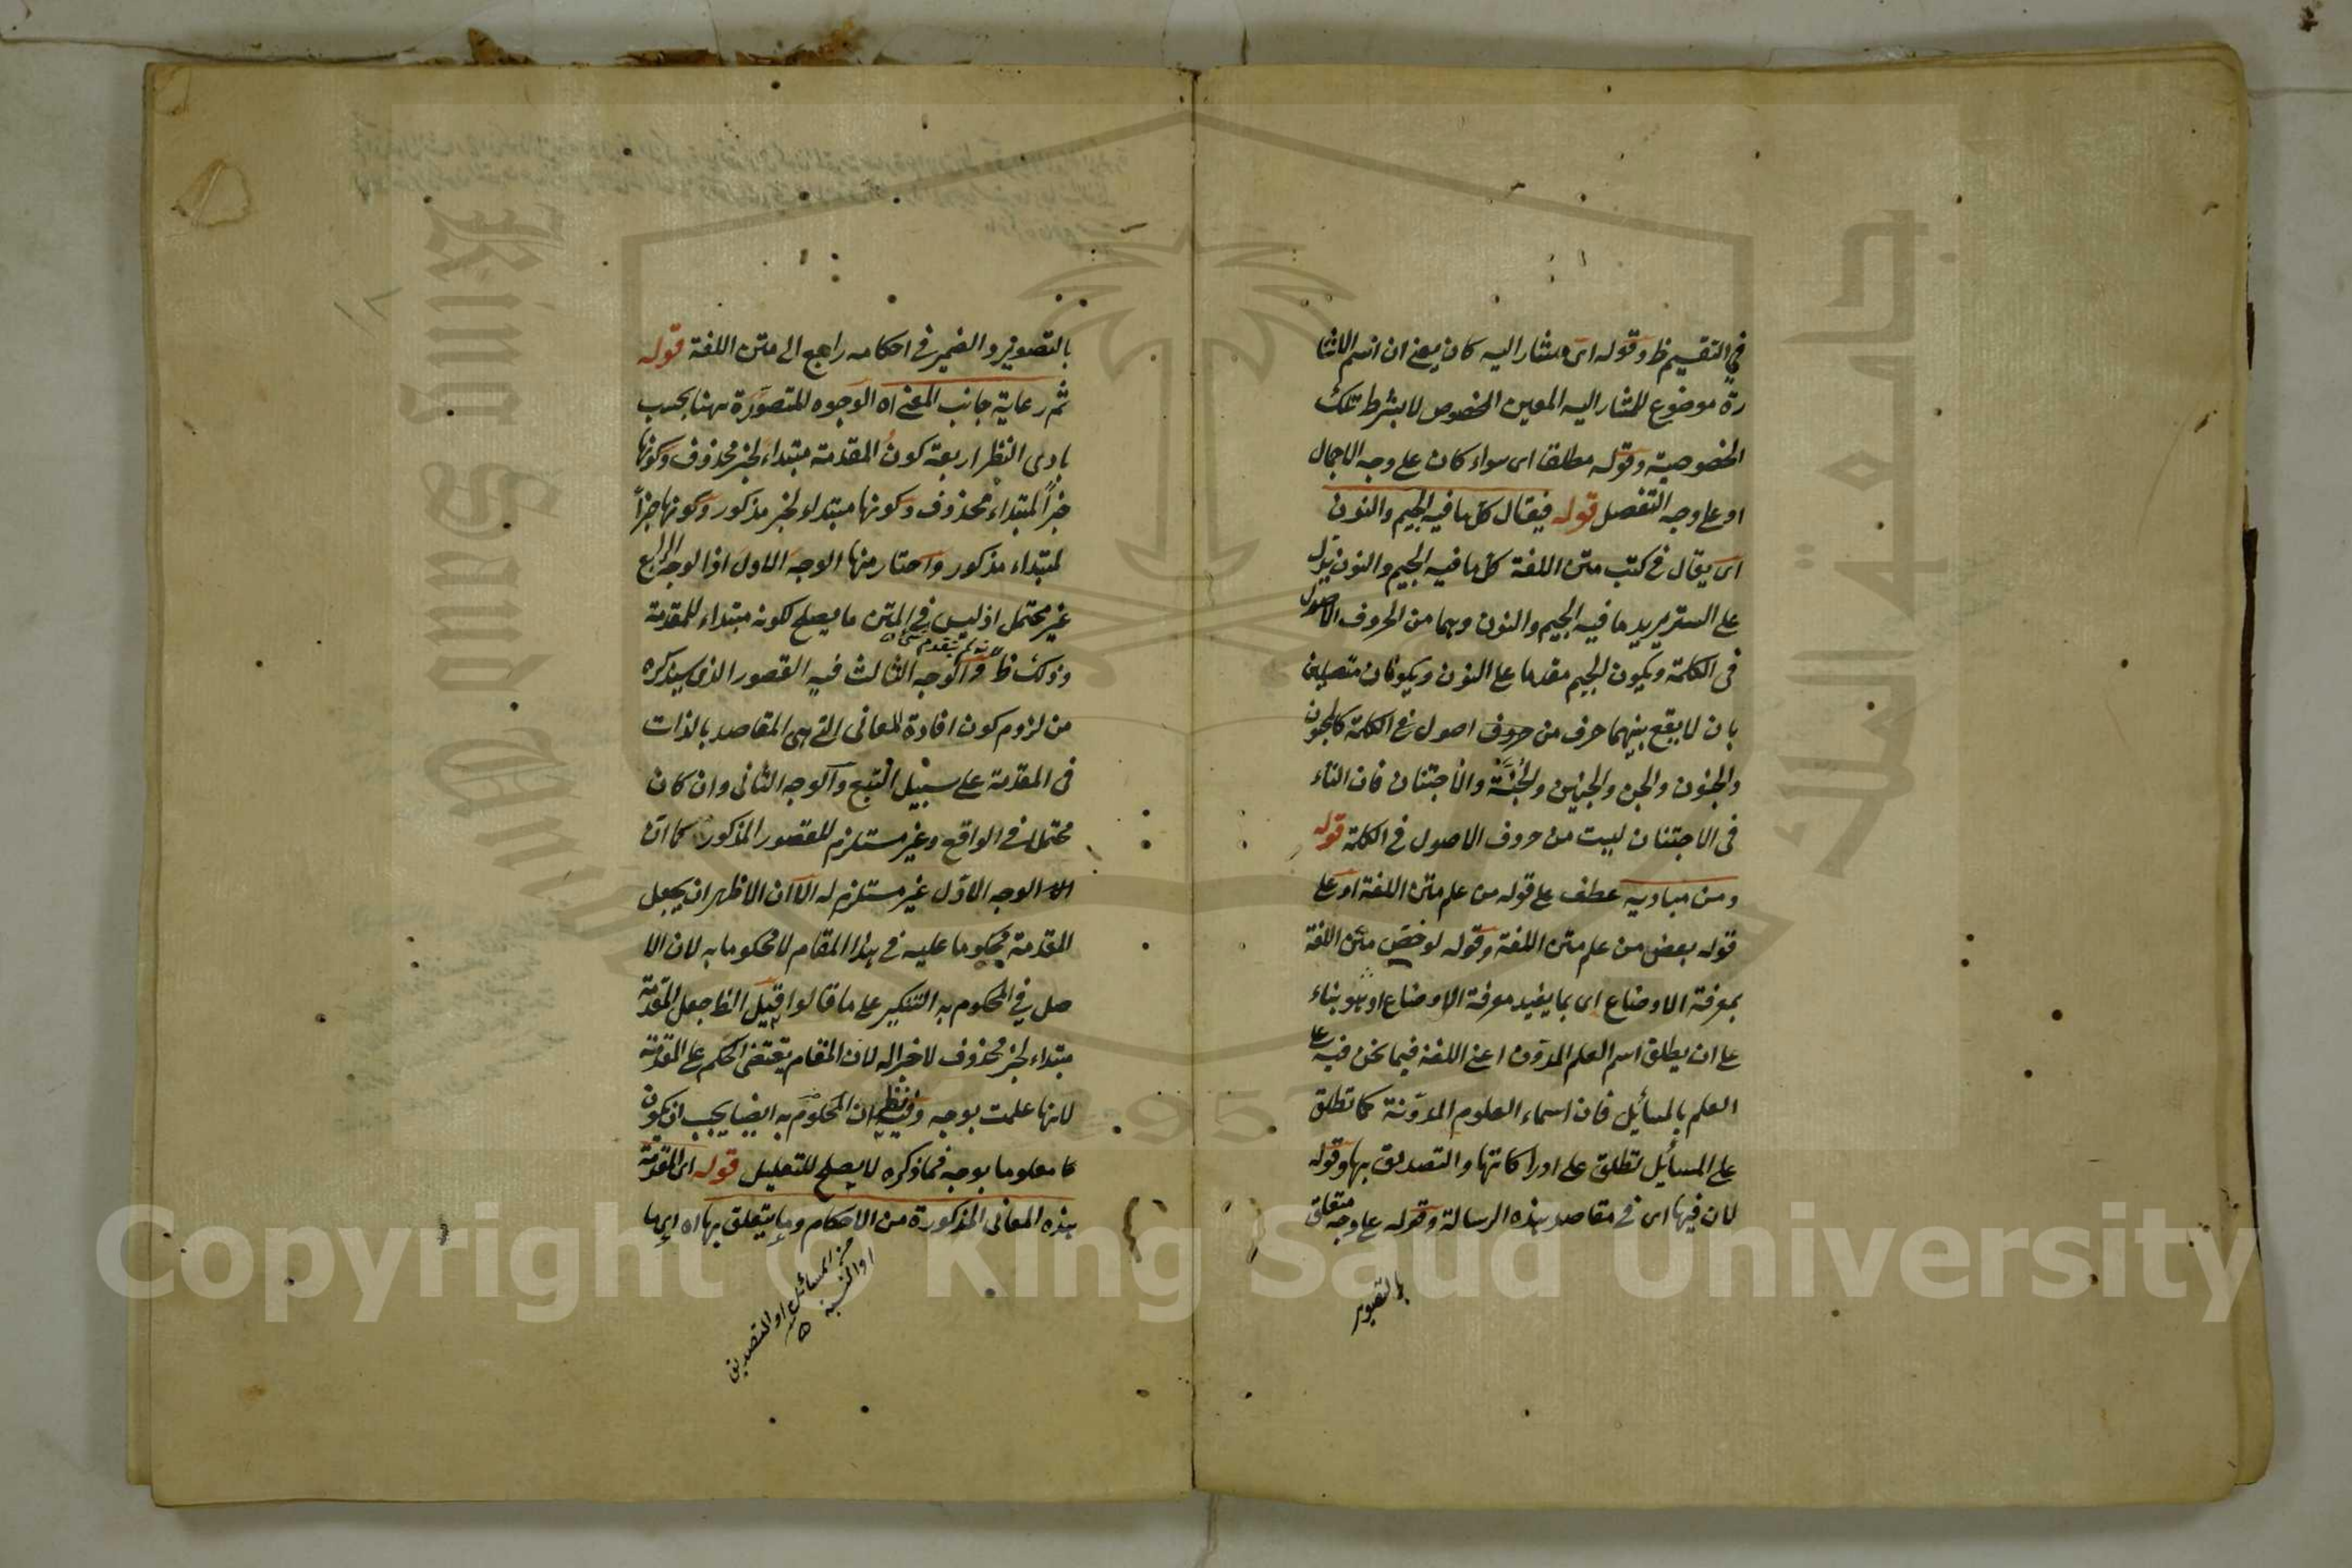 في التقسيم ظ وقوله اى مشار اليه كان يعنى ان اسم الاشا
رة موضوع للمشار اليه المعين المخصوص لا بشرط تلك
الخصوصية وقوله مطلقا اى سواء كان على وجه الاجمال
او على وجه التفصل قوله فيقال كل ما فيه الجيم والنون
اى يقال في كتب متن اللغة كل ما فيه الجيم والنون يدل
على الستر يريد ما فيه الجيم والنون وهما من الحروف الاصول
فى الكلمة ويكون الجيم مقدما على النون ويكونان متصلين
بان لا يقع بينهما حرف من حروف اصول في الكلمة كالجنون
والجنون والجن والجنين والجنة والاجتنان فان التاء
فى الاجتنان ليست من حروف الاصول في الكلمة قوله
ومن مباديه عطف على قوله من علم متن اللغة او على
قوله بعض من علم متن اللغة وقوله لو خص متن اللغة
بمعرفة الاوضاع اى بما يفيد معرفة الاوضاع او هو بناء
على ان يطلق اسم العلم المدون اعنى اللغة فيما نحن فيه على
العلم بالمسائل فان اسماء العلوم المدونة كما تطلق
على المسائل تطلق على ادراكاتها والتصديق بها وقوله
لان فيها اى في مقاصد هذه الرسالة وقوله على وجه متعلق
بالتصوير
بالتصوير والضمير في احكامه راجع الى متن اللغة قوله
ثم رعاية جانب المعنى اه الوجوه المتصورة ههنا بحسب
بادى النظر اربعة كون المقدمة مبتداء لخبر محذوف وكونها
خبراً لمبتداء محذوف وكونها مبتداء لخبر مذكور وكونها خبراً
لمبتداء مذكور واختار منها الوجه الاول اذ الوجه الرابع
غير محتمل اذ ليس في المتن ما يصلح لكونه مبتداء للمقدمة
وذلك ظ والوجه الثالث فيه القصور الذى سيذكره
من لزوم كون افادة المعانى التى هى المقاصد بالذات
فى المقدمة على سبيل التبع والوجه الثانى وان كان
محتملا في الواقع وغير مستلزم للقصور المذكور كما ان
الوجه الاول غير مستلزم له الا ان الاظهر ان يجعل
المقدمة محكوما عليه في هذا المقام لا محكوما به لان الا
صل في المحكوم به التنكير على ما قالوا قيل الظ جعل المقدمة
مبتداء لخبر محذوف لا خبرا له لان المقام يقتضى الحكم على المقدمة
لانها علمت بوجه وفيه نظر ان المحكوم به ايضا يجب ان يكون
معلوما بوجه فما ذكره لا يصلح للتعليل قوله اى المقدمة
هذه المعانى المذكورة من الاحكام وما يتعلق بها اه اى ما
من المسائل او التصديق
او النسبة
Copyright © King Saud University